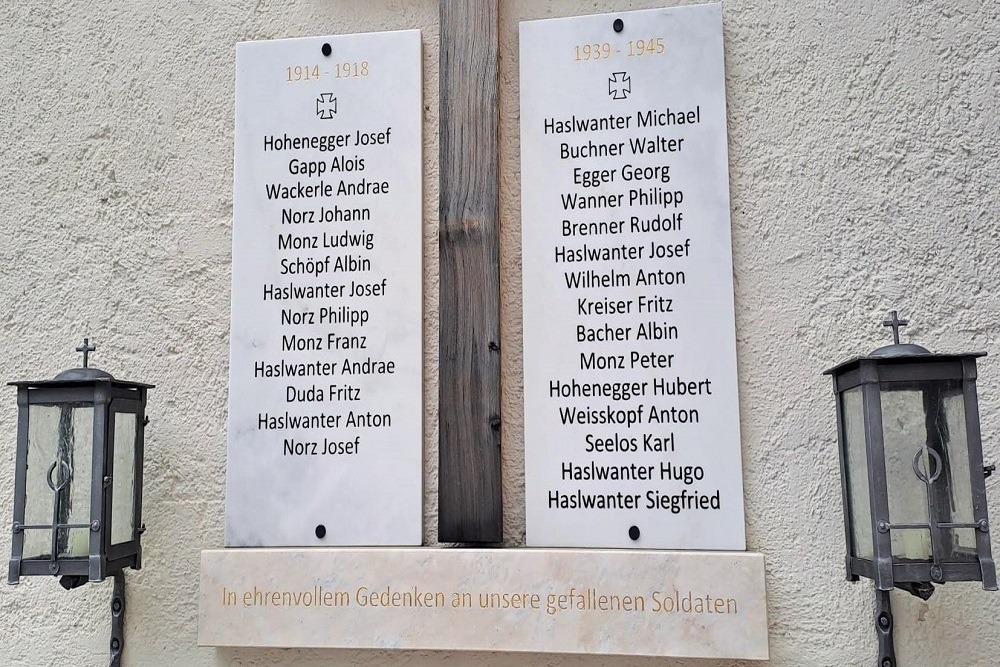 1914 - 1918
Hohenegger Josef
Gapp Alois
Wackerle Andrae
Norz Johann
Monz Ludwig
Schöpf Albin
Haslwanter Josef
Norz Philipp
Monz Franz
Haslwanter Andrae
Duda Fritz
Haslwanter Anton
Norz Josef
1939 - 1945
Haslwanter Michael
Buchner Walter
Egger Georg
Wanner Philipp
Brenner Rudolf
Haslwanter Josef
Wilhelm Anton
Kreiser Fritz
Bacher Albin
Monz Peter
Hohenegger Hubert
Weisskopf Anton
Seelos Karl
Haslwanter Hugo
Haslwanter Siegfried
In ehrenvollem Gedenken an unsere gefallenen Soldaten